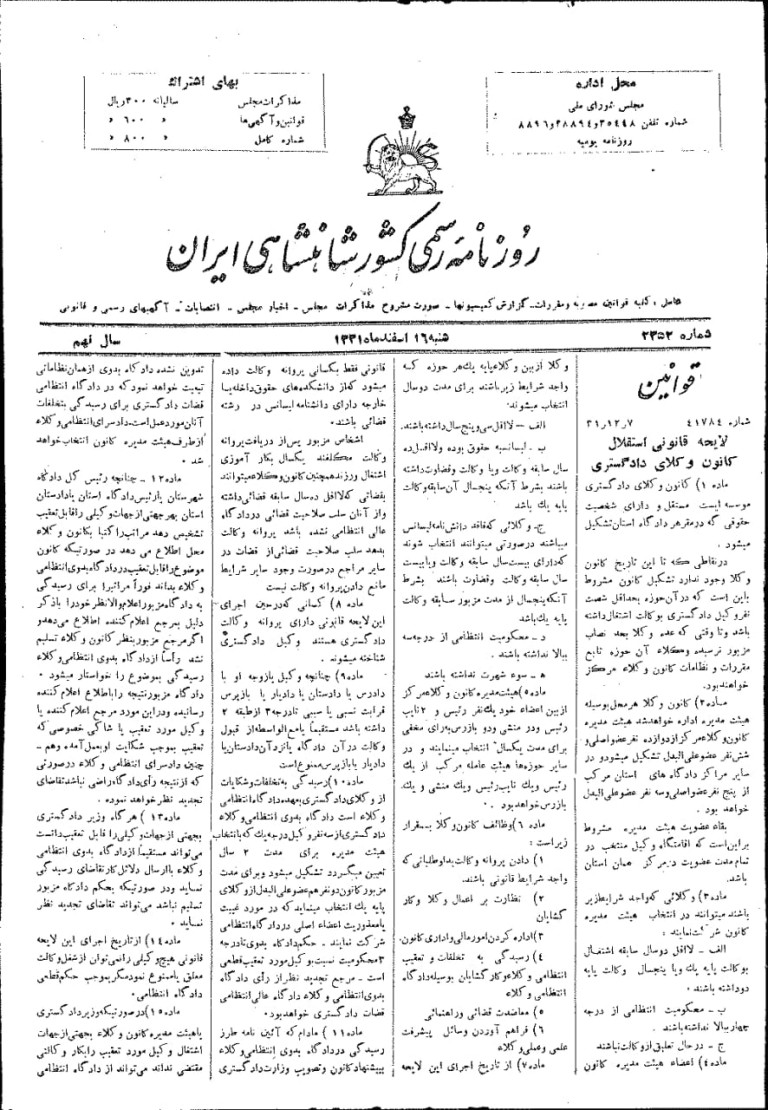 محل اداره
مجلس شورای ملی
شماره تلفن ۳۵۴۴۸و۳۸۸۹۴و۸۸۹۶
روزنامه یومیه
بهای اشتراك
مذاکرات مجلس سالیانه ۳۰۰ ریال
قوانین و آگهی‌ها » ۶۰۰ »
شماره کامل » ۸۰۰ »
روزنامه رسمی کشور شاهنشاهی ایران
شامل کلیه قوانین مصوبه و مقررات - گزارش کمیسیونها - صورت مشروح مذاکرات مجلس - اخبار مجلس - انتصابات - آگهیهای رسمی و قانونی
شماره ۲۳۵۲
شنبه ۱۶ اسفند ماه ۱۳۳۱
سال نهم
قوانین
شماره ۴۱۷۸۴ ۳۱٫۱۲٫۷
لایحه قانونی استقلال
کانون وکلای دادگستری
ماده ۱) کانون وکلای دادگستری
موسسه ایست مستقل و دارای شخصیت
حقوقی که در مقر هر دادگاه استان تشکیل
میشود.
در نقاطی که تا این تاریخ کانون
وکلا وجود ندارد تشکیل کانون مشروط
باین است که در آن حوزه بحداقل شصت
نفر وکیل دادگستری بوکالت اشتغال داشته
باشد و تا وقتی که عده وکلا بحد نصاب
مزبور نرسیده وکلاء آن حوزه تابع
مقررات و نظامات کانون وکلاء مرکز
خواهند بود.
ماده ۲) کانون وکلا هر محل بوسیله
هیئت مدیره اداره خواهد شد هیئت مدیره
کانون وکلاء مرکز از دوازده نفر عضو اصلی و
شش نفر عضو علی البدل تشکیل میشود و در
سایر مراکز دادگاه های استان مرکب
از پنج نفر عضو اصلی و سه نفر عضو علی البدل
خواهد بود.
بقاء عضویت هیئت مدیره مشروط
براین است که اقامتگاه وکیل منتخب در
تمام مدت عضویت در مرکز همان استان
باشد.
ماده ۳) وکلائی که واجد شرایط زیر
باشند میتوانند در انتخاب هیئت مدیره
کانون شرکت نمایند:
الف - لااقل دو سال سابقه اشتغال
بوکالت پایه یك و یا پنجسال وکالت پایه
دو داشته باشند.
ب - محکومیت انتظامی از درجه
چهار ببالا نداشته باشند.
ج - در حال تعلیق از وکالت نباشند
ماده ۴) اعضاء هیئت مدیره کانون
وکلا از بین وکلاء پایه یك هر حوزه که
واجد شرایط زیر باشند برای مدت دو سال
انتخاب میشوند
الف - لااقل سی و پنج سال داشته باشند.
ب - لیسانسیه حقوق بوده و لااقل ده
سال سابقه وکالت و یا وکالت و قضاوت داشته
باشند بشرط آنکه پنجسال آن سابقه وکالت
پایه یك باشد
ج - وکلائی که فاقد دانش نامه لیسانس
میباشند در صورتی میتوانند انتخاب شوند
که دارای بیست سال سابقه وکالت و یا بیست
سال سابقه وکالت و قضاوت باشند بشرط
آنکه پنجسال از مدت مزبور سابقه وکالت
پایه یك باشد
د - محکومیت انتظامی از درجه سه
ببالا نداشته باشند.
ه - سوء شهرت نداشته باشند
ماده ۵) هیئت مدیره کانون وکلاء مرکز
از بین اعضاء خود یك نفر رئیس و ۲ نایب
رئیس و دو منشی و دو بازرس به رای مخفی
برای مدت یکسال انتخاب مینمایند و در
سایر حوزه‌ها هیئت عامله مرکب از یك
رئیس و یك نایب رئیس و یك منشی و یك
بازرس خواهد بود.
ماده ۶) وظائف کانون وکلا بقرار
زیر است:
۱) دادن پروانه وکالت بداوطلبانی که
واجد شرایط قانونی باشند.
۲) نظارت بر اعمال وکلا و کار
گشایان
۳) اداره کردن امور مالی و اداری کانون.
۴) رسیدگی به تخلفات و تعقیب
انتظامی وکلاء و کارگشایان بوسیله دادگاه
انتظامی وکلاء
۵) معاضدت قضائی و راهنمائی
۶) فراهم آوردن وسائل پیشرفت
علمی و عملی وکلاء
ماده ۷) از تاریخ اجرای این لایحه
قانونی فقط بکسانی پروانه وکالت داده
میشود که از دانشکده های حقوق داخله یا
خارجه دارای دانشنامه لیسانس در رشته
قضائی باشند.
اشخاص مزبور پس از دریافت پروانه
وکالت مکلفند یکسال بکار آموزی
اشتغال ورزند همچنین کانون وکلاء میتوانند
بقضاتی که لااقل ده سال سابقه قضائی داشته
و از آنان سلب صلاحیت قضائی در دادگاه
عالی انتظامی نشده باشد پروانه وکالت
بدهد سلب صلاحیت قضائی از قضات در
سایر مراجع در صورت وجود سایر شرایط
مانع دادن پروانه وکالت نیست
ماده ۸) کسانی که در حین اجرای
این لایحه قانونی دارای پروانه وکالت
دادگستری هستند وکیل دادگستری
شناخته میشوند.
ماده ۹) چنانچه وکیل یا زوجه او با
دادرس یا دادستان یا دادیار یا بازپرس
قرابت نسبی یا سببی تا درجه ۳ از طبقه ۲
داشته باشد مستقیماً یا مع الواسطه از قبول
وکالت در آن دادگاه یا نزد آن دادستان یا
دادیار یا بازپرس ممنوع است
ماده ۱۰) رسیدگی به تخلفات و شکایات
از وکلای دادگستری بعهده دادگاه انتظامی
وکلاء است دادگاه بدوی انتظامی وکلاء
دادگستری از سه نفر وکیل درجه یك که بانتخاب
هیئت مدیره برای مدت ۲ سال
تعیین میگردد تشکیل میشود و برای مدت
مزبور کانون دو نفر هم عضو علی البدل از وکلای
پایه یك انتخاب مینماید که در مورد غیبت
یا معذوریت اعضاء اصلی در دادگاه انتظامی
شرکت نمایند - حکم دادگاه بدوی تا درجه
۳ محکومیت نسبت بوکیل مورد تعقیب قطعی
است - مرجع تجدید نظر از رأی دادگاه
بدوی انتظامی وکلاء دادگاه عالی انتظامی
قضات دادگستری خواهد بود.
ماده ۱۱) مادام که آئین نامه طرز
رسیدگی در دادگاه بدوی انتظامی وکلاء
بپیشنهاد کانون و تصویب وزارت دادگستری
تدوین نشده دادگاه بدوی از همان نظاماتی
تبعیت خواهد نمود که در دادگاه انتظامی
قضات دادگستری برای رسیدگی بتخلفات
آنان مورد عمل است - دادسرای انتظامی وکلاء
از طرف هیئت مدیره کانون انتخاب خواهد
شد.
ماده ۱۲ - چنانچه رئیس کل دادگاه
شهرستان یا رئیس دادگاه استان یا دادستان
استان بهر جهتی از جهات وکیلی را قابل تعقیب
تشخیص دهد مراتب را کتبا بکانون وکلاء
محل اطلاع می دهد در صورتیکه کانون
موضوع را قابل تعقیب در دادگاه بدوی انتظامی
وکلاء بداند فوراً مراتب را برای رسیدگی
به دادگاه مزبور اعلام والا نظر خود را با ذکر
دلیل بمرجع اعلام کننده اطلاع می‌دهد و
اگر مرجع مزبور بنظر کانون وکلاء تسلیم
نشد رأسا از دادگاه بدوی انتظامی وکلاء
رسیدگی بموضوع را خواستار میشود.
دادگاه مزبور نتیجه را باطلاع اعلام کننده
رسانیده و در این مورد مرجع اعلام کننده یا
وکیل مورد تعقیب یا شاکی خصوصی که
تعقیب بموجب شکایت او بعمل آمده و هم-
چنین دادسرای انتظامی وکلاء در صورتی
که از نتیجه رأی دادگاه راضی نباشد تقاضای
تجدید نظر خواهد نمود.
ماده ۱۳) هر گاه وزیر دادگستری
بجهتی از جهات وکیلی را قابل تعقیب دانست
می‌تواند مستقیماً از دادگاه بدوی انتظامی
وکلاء با ارسال دلائل کار تقاضای رسیدگی
نماید و در صورتیکه بحکم دادگاه مزبور
تسلیم نباشد می‌تواند تقاضای تجدید نظر
نماید.
ماده ۱۴) از تاریخ اجرای این لایحه
قانونی هیچ وکیلی را نمی‌توان از شغل وکالت
معلق یا ممنوع نمود مگر بموجب حکم قطعی
دادگاه انتظامی.
ماده ۱۵) در صورتیکه وزیر دادگستری
یا هیئت مدیره کانون وکلاء بجهتی از جهات
اشتغال وکیل مورد تعقیب را بکار وکالتی
مقتضی نداند می‌تواند از دادگاه انتظامی